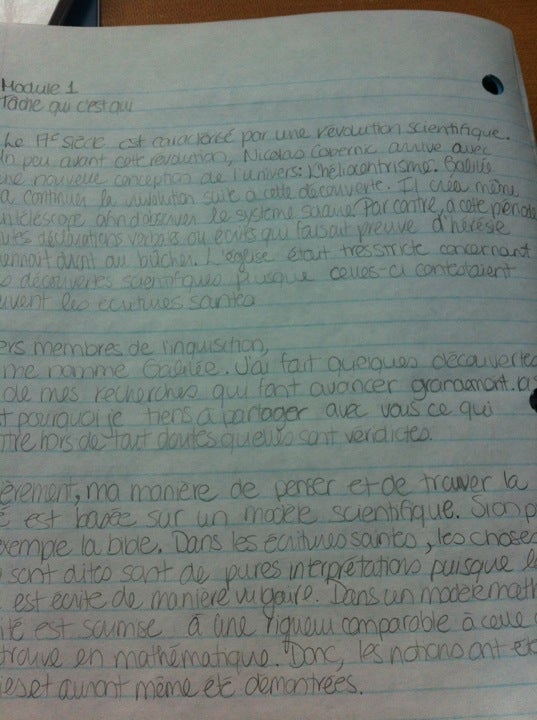 Module 1
Tâche qui c'est qui
Le 17e siècle est caractérisé par une révolution scientifique.
Un peu avant cette révolution, Nicolas Copernic arrive avec
une nouvelle conception de l'univers: l'héliocentrisme. Galilée
a continuer la révolution suite à cette découverte. Il créa même
un téléscope afin d'observer le système solaire. Par contre, à cette période
utes déclarations verbales ou écrites qui faisait preuve d'hérésie
ennait droit au bûcher. L'église était très stricte concernant
s découvertes scientifiques puisque celles-ci contredisaient
uvent les écritures saintes
ers membres de l'inquisition,
me nomme Galilée. J'ai fait quelques découvertes
de mes recherches qui font avancer grandement la
t pourquoi je tiens à partager avec vous ce qui
ntre hors de tout doutes qu'elles sont véridictes.
èrement, ma manière de penser et de trouver la
é est basée sur un modèle scientifique. Si on p
exemple la bible. Dans les écritures saintes, les choses
sont dites sont de pures interprétations puisque l
est écrite de manière vulgaire. Dans un modèle math
ité est soumise à une rigueur comparable à celle
trouve en mathématique. Donc, les notions ont ét
ies et auront même été démontrées.